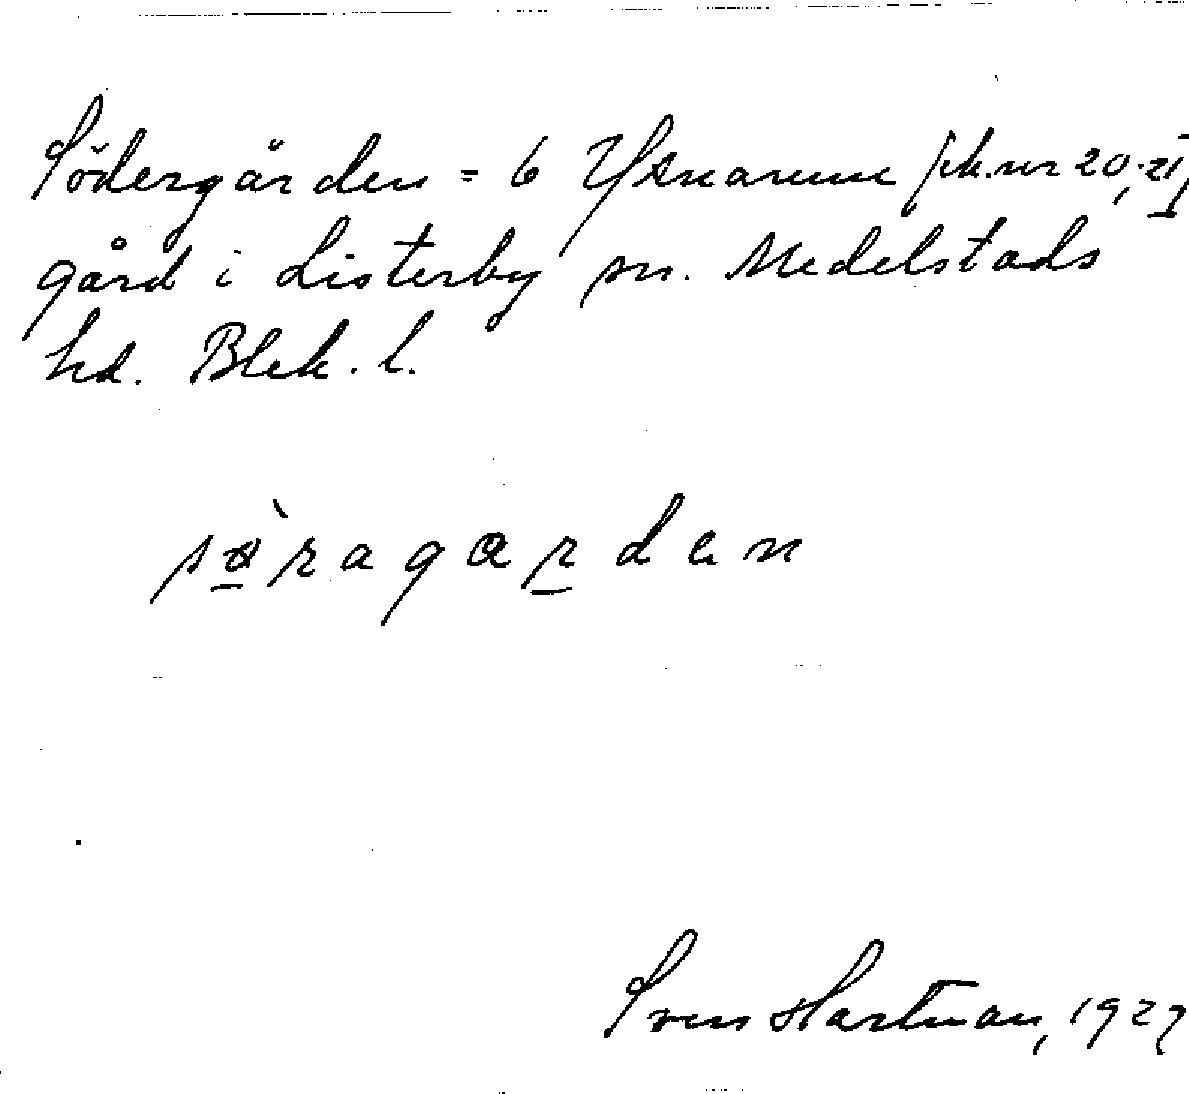 Södergården = 6 Yxnarum /sk.nr 20, 21,
gård i Listerby sn. Medelstads
hd. Blek. l.
sø̀ragarden
Sven Hartman, 1927